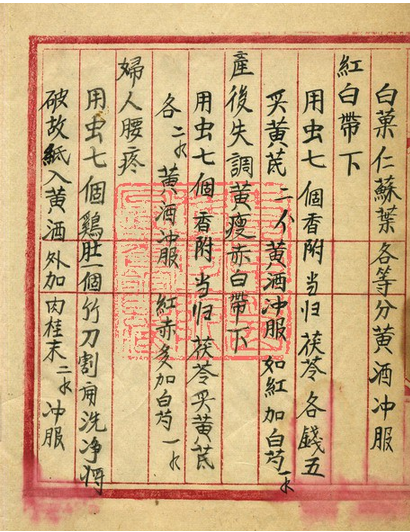 白菓仁蘇葉各等分黃酒冲服
紅白帶下
用虫七個香附当归茯苓各錢五
炙黃芪二个黃酒冲服如紅加白芍一
產後失調黃瘦赤白帶下
用虫七個香附当归茯苓炙黃芪
各二黃酒冲服紅赤多加白芍一
婦人腰疼
用虫七個鷄肚一個竹刀割開洗净将
破故紙入黃酒外加肉桂末二冲服